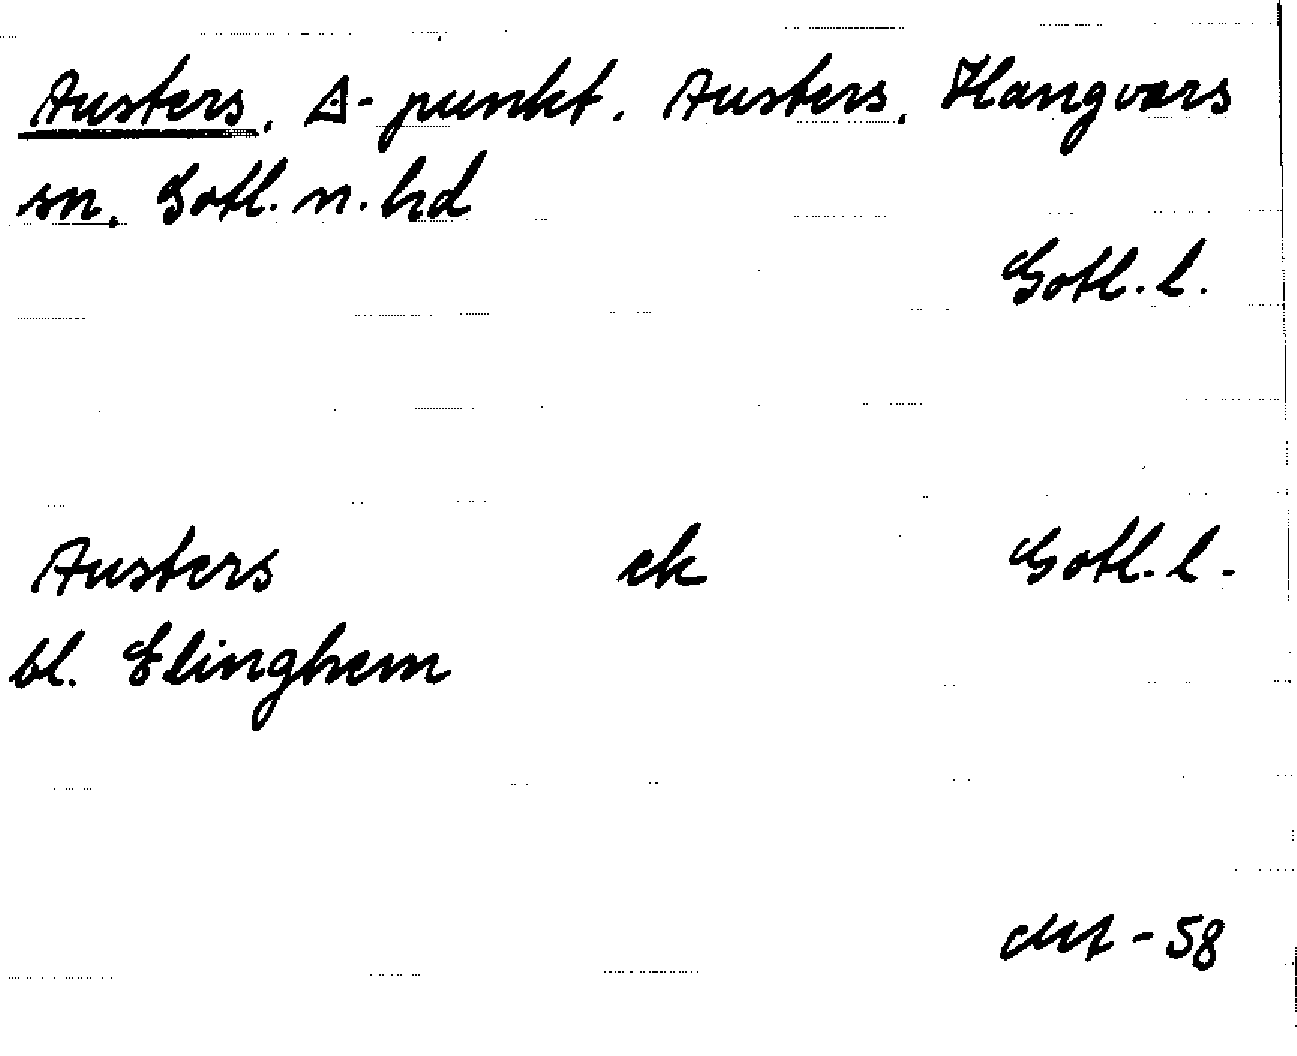 Austers. Δ-punkt. Austers. Hangvars
sn. Gotl. n. hd
Gotl. l.
Austers ek Gotl. l.
bl. Elinghem
-58